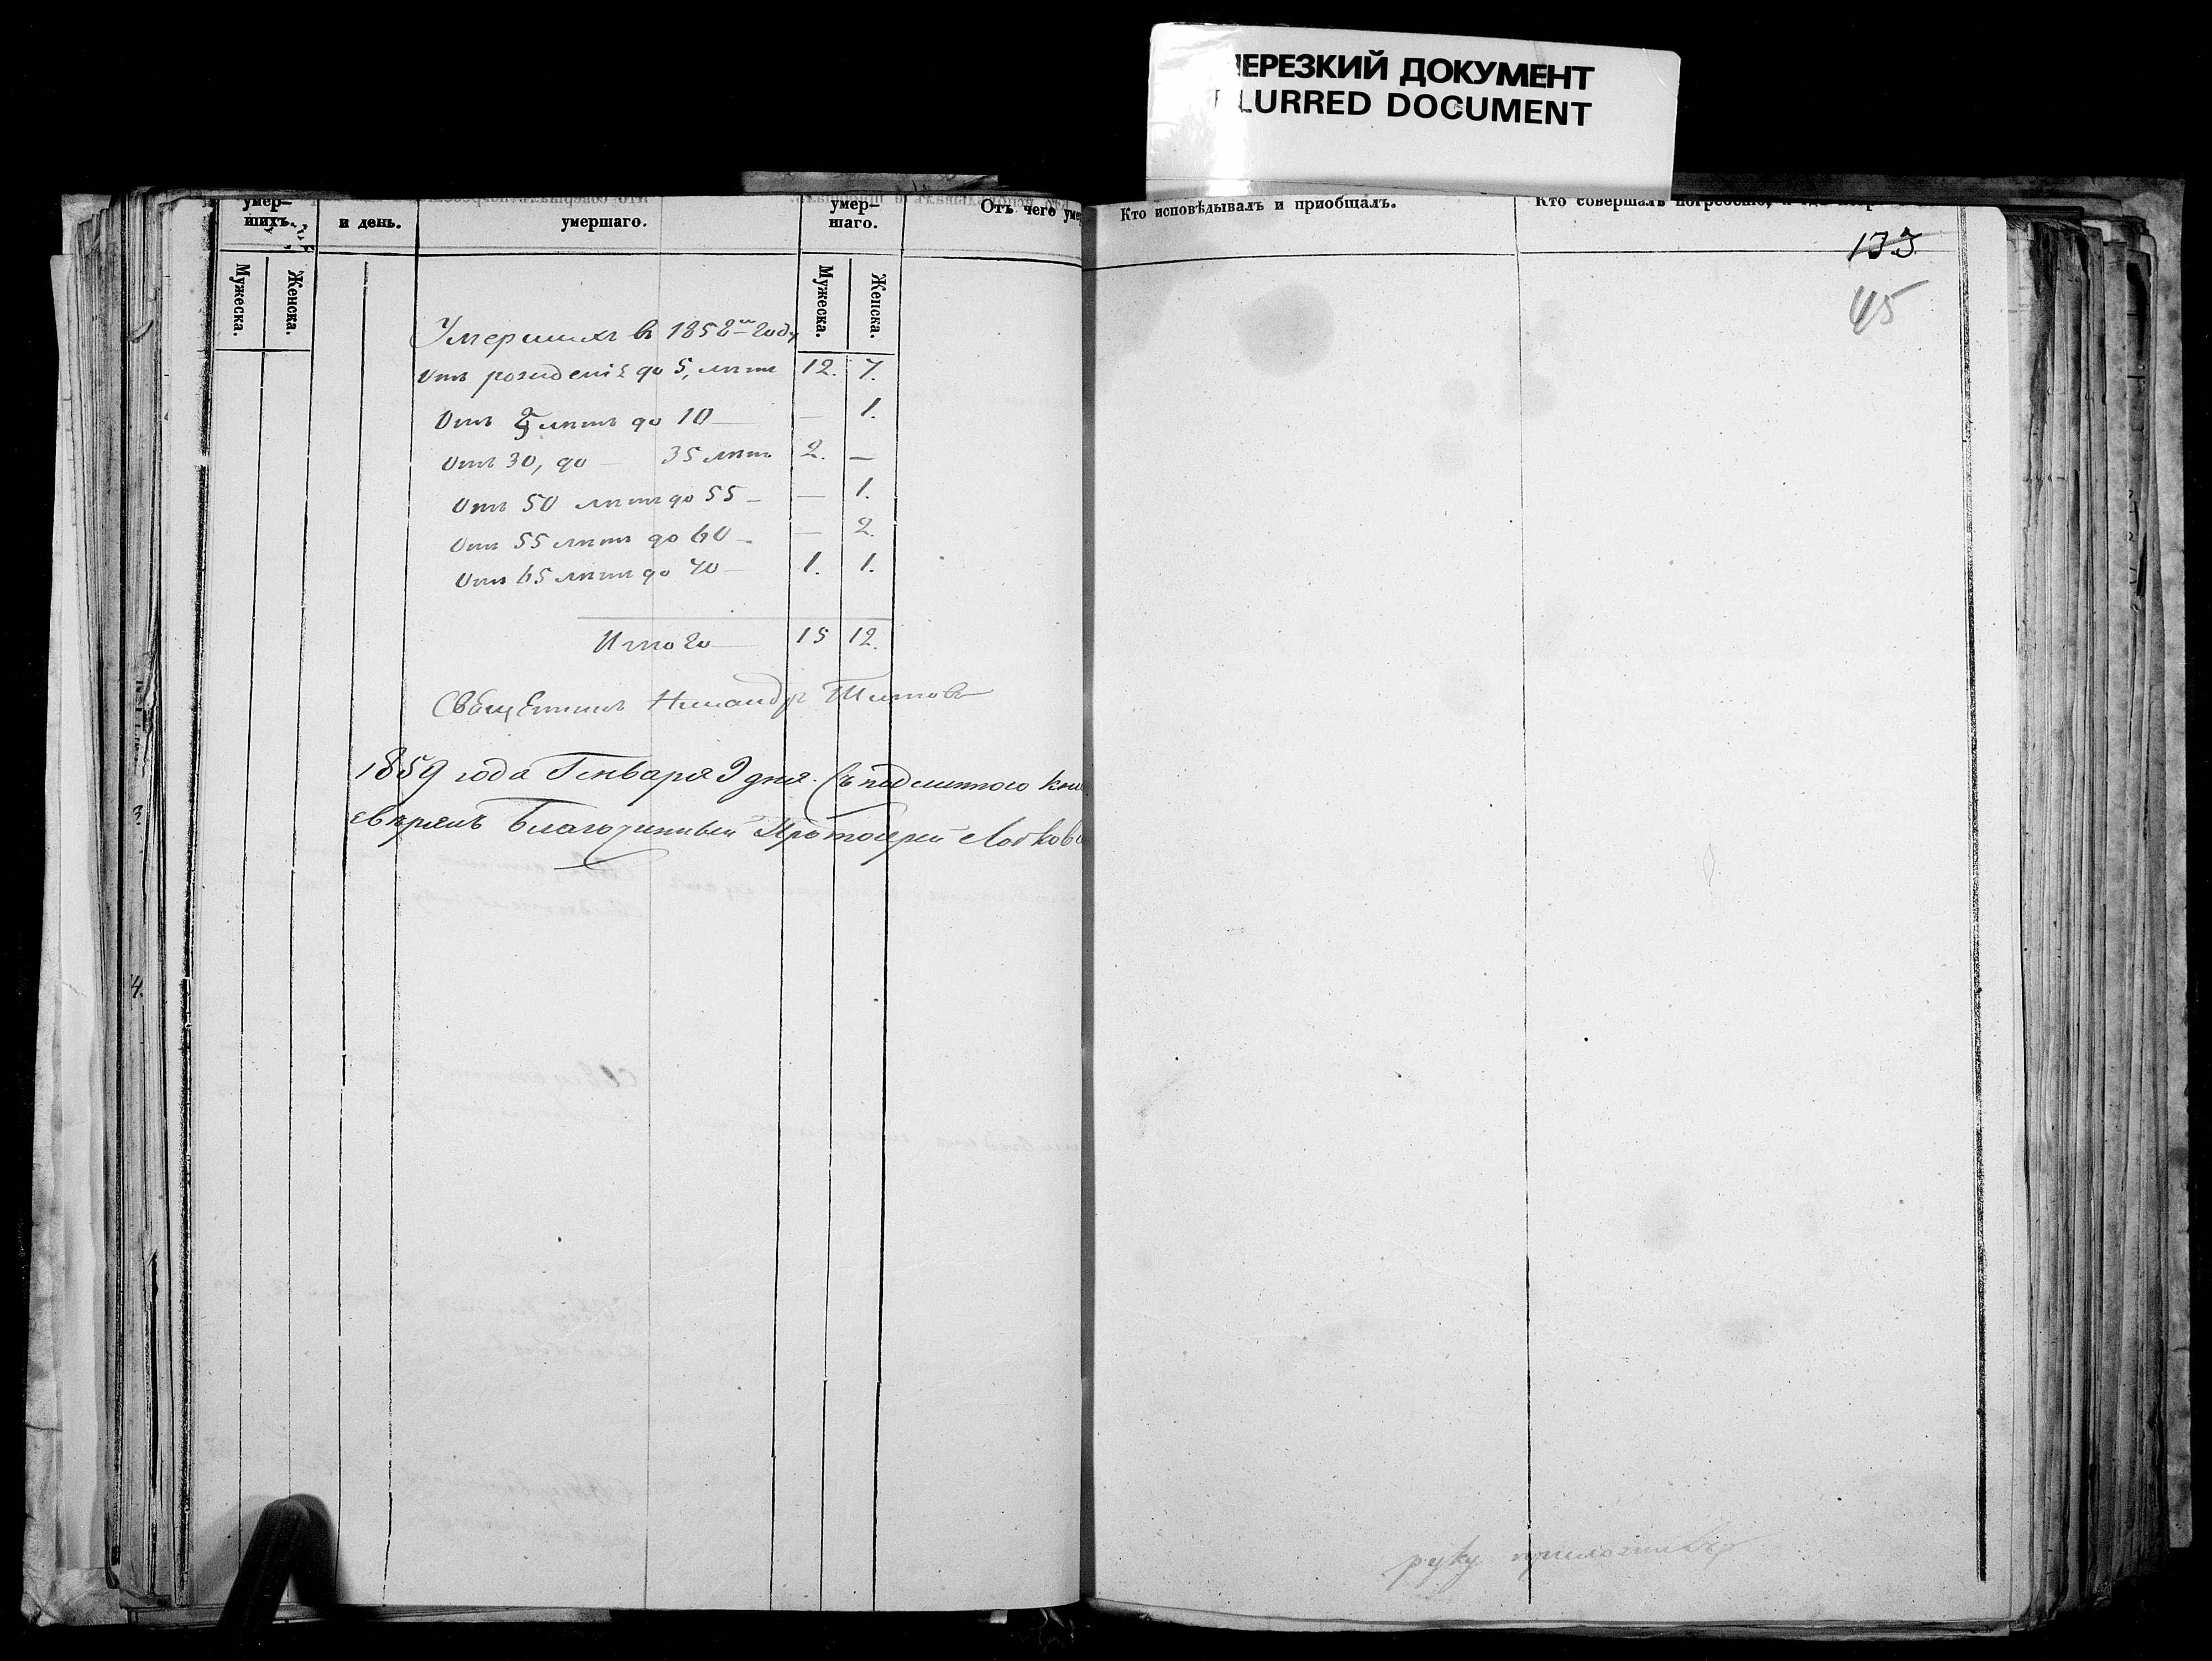 НЕРЕЗКИЙ ДОКУМЕНТ
BLURRED DOCUMENT
умер-
шихъ.
и день.
умершаго.
умер-
шаго.
Отъ чего уме
Мужеска.
Женска.
Мужеска.
Женска.
Умершихъ въ 1858мъ году
Отъ рожденія до 5, лѣтъ 12. 7.
Отъ 5 лѣтъ до 10 — — 1.
Отъ 30, до — 35 лѣтъ 2. —
Отъ 50 лѣтъ до 55 — — 1.
Отъ 55 лѣтъ до 60 — — 2.
Отъ 65 лѣтъ до 70 — 1. 1.
Итого — 15 12.
Священникъ Никандръ Титовъ
1859 года Генваря 9 дня. Съ подлинною кни
свѣрялъ Благочинный Протоіерей
Кто исповѣдывалъ и приобщалъ.
Кто совершалъ погребеніе, и
133
45
руку приложилъ